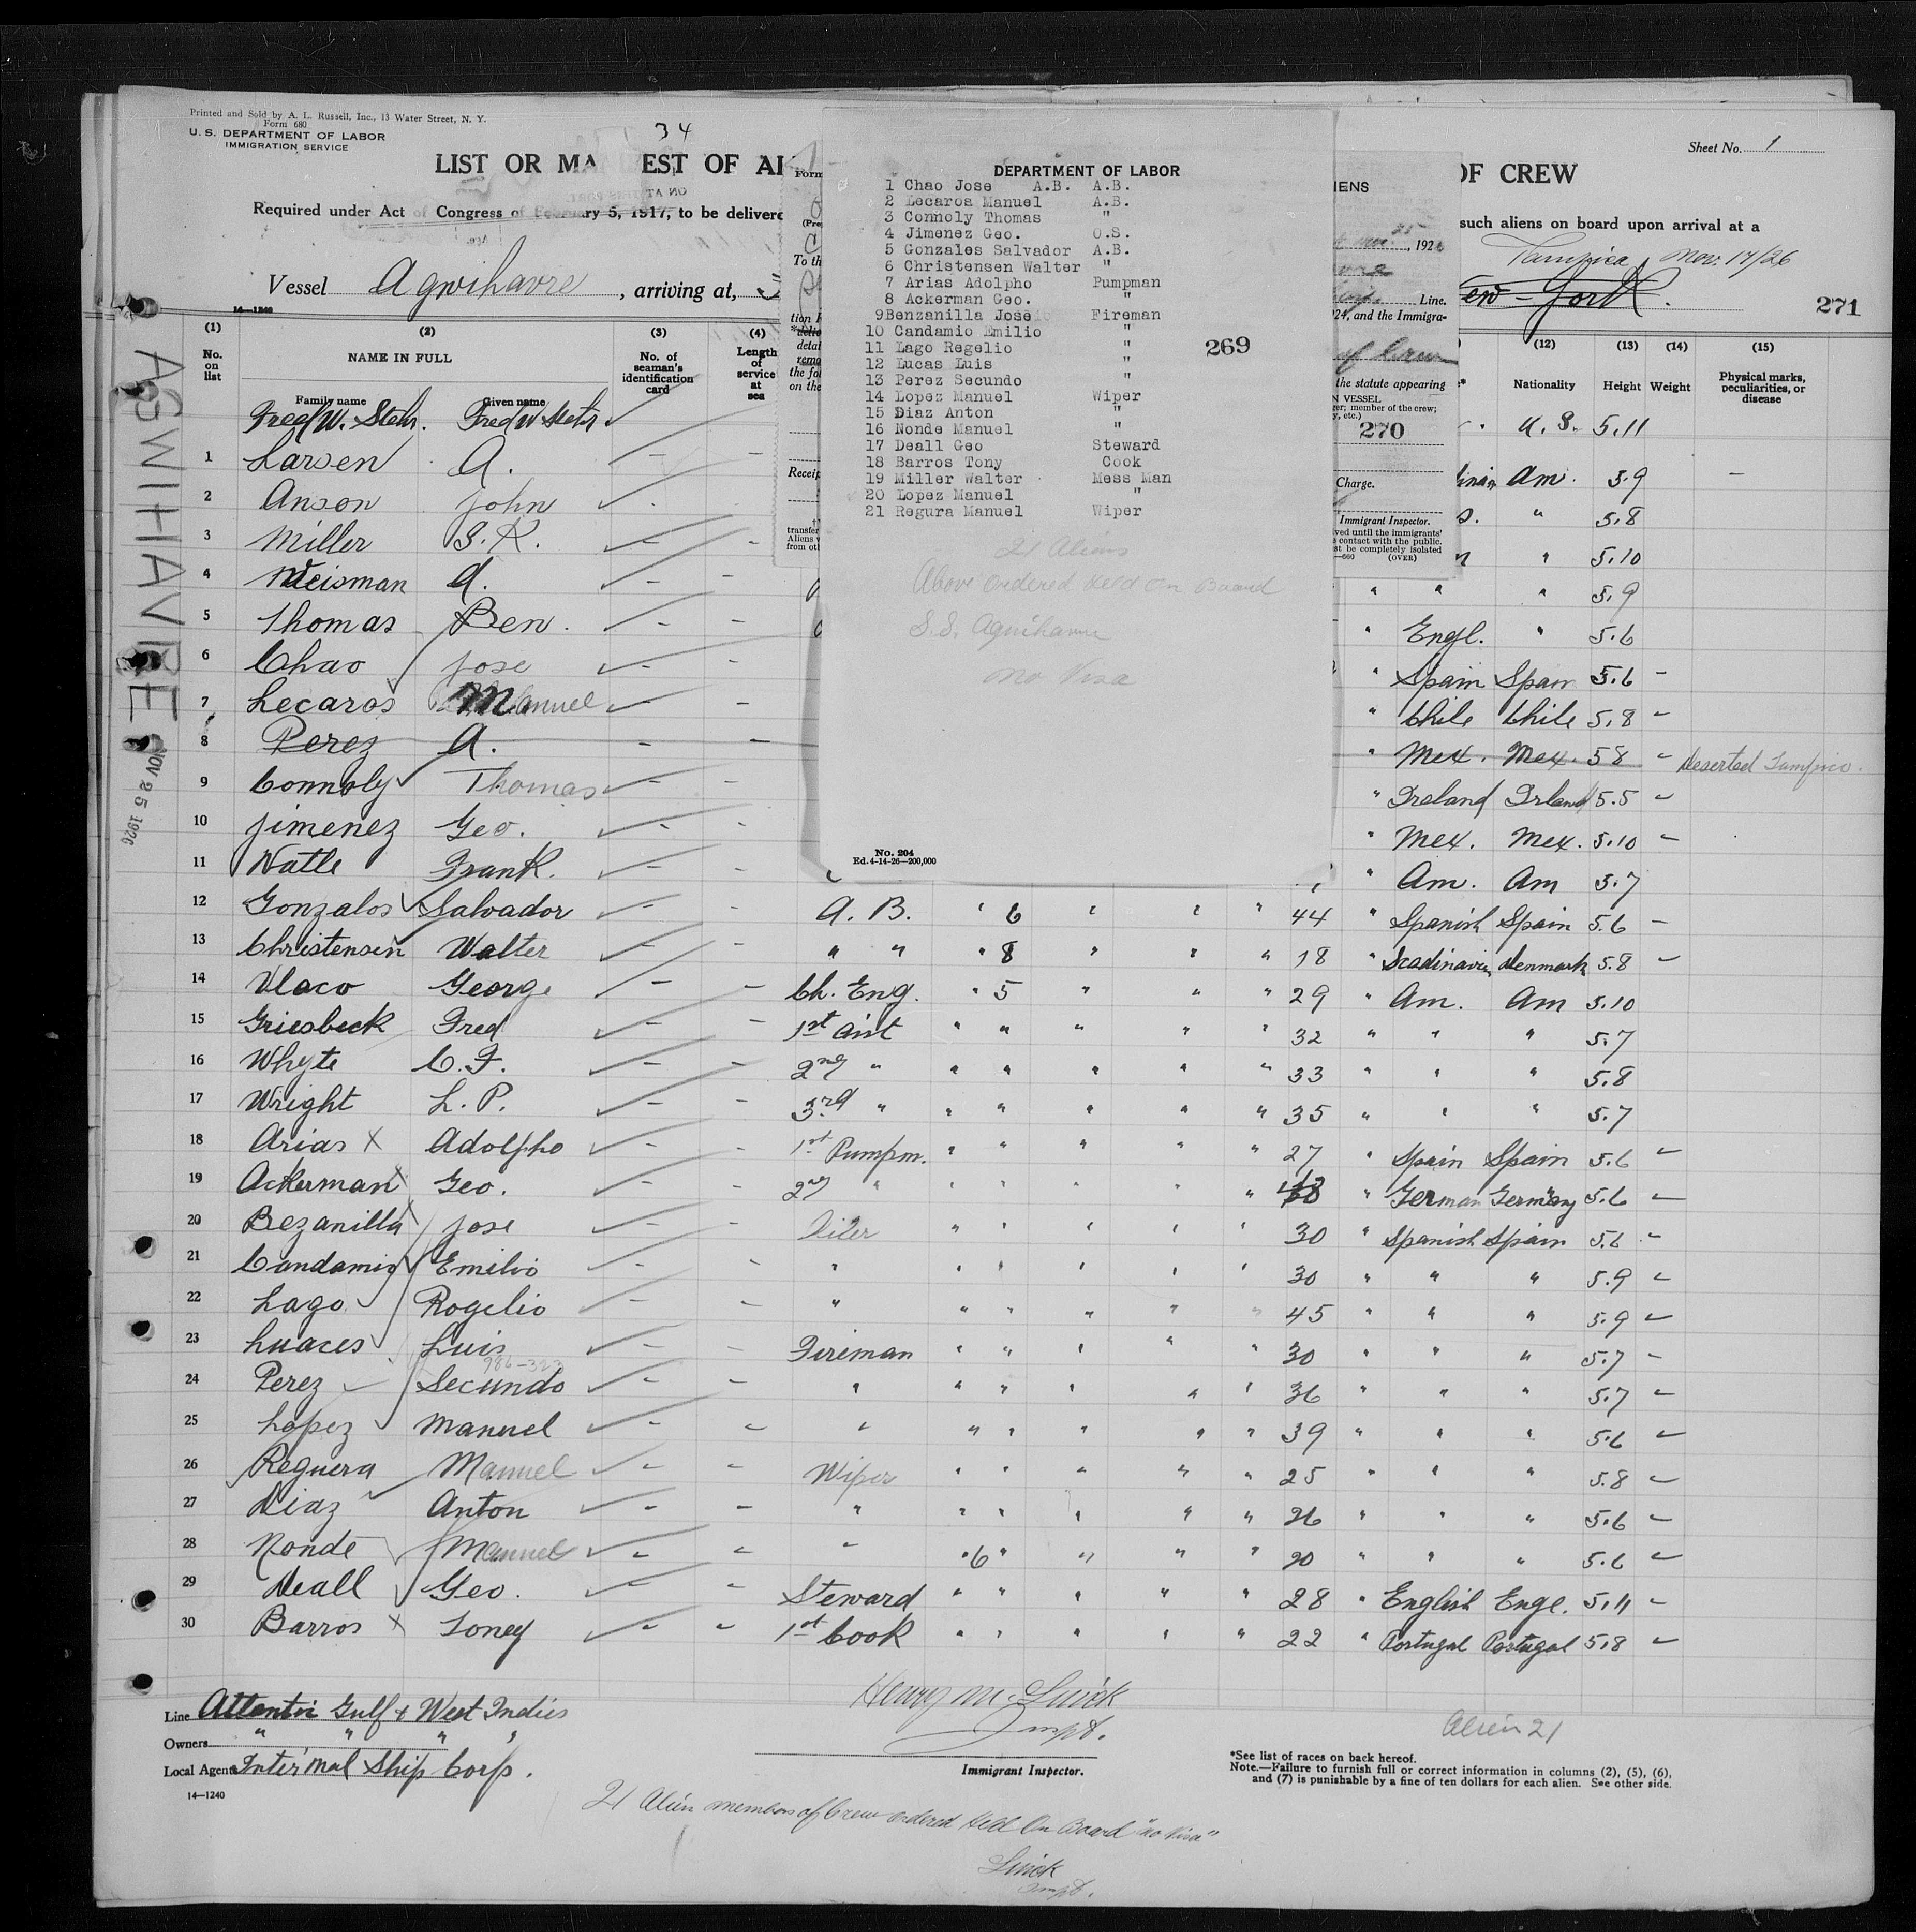 Printed and Sold by A. L. Russell, Inc., 13 Water Street, N. Y.
Form 680
U. S. DEPARTMENT OF LABOR
IMMIGRATION SERVICE
34
Sheet No. 1
LIST OR MA EST OF AL
OF CREW
Required under Act of Congress of February 5, 1917, to be delivere
such aliens on board upon arrival at a
Vessel Agwihavre, arriving at,
Tampico, Nov. 17/26
ew-York.
271
AGWIHAVRE
NOV 25 1926
DEPARTMENT OF LABOR
1 Chao Jose A.B. A.B.
2 Lecaroa Manuel A.B.
3 Connoly Thomas "
4 Jimenez Geo. O.S.
5 Gonzales Salvador A.B.
6 Christensen Walter "
7 Arias Adolpho Pumpman
8 Ackerman Geo. "
9Benzanilla Jose Fireman
10 Candamio Emilio "
11 Lago Regelio "
12 Lucas Luis "
13 Perez Secundo "
14 Lopez Manuel Wiper
15 Diaz Anton "
16 Nonde Manuel "
17 Deall Geo Steward
18 Barros Tony Cook
19 Miller Walter Mess Man
20 Lopez Manuel "
21 Regura Manuel Wiper
269
21 Aliens
Above ordered held on Board
S.S. Agwihavre
no Visa
No. 204
Ed. 4-14-26—200,000
Form
(Pre
To th
tion
detai
the fo
on the
Receip
transfer
Aliens
from oth
IENS
25, 192
Line.
24, and the Immigra-
of Crew
the statute appearing
N VESSEL
ger; member of the crew;
y, etc.)
270
Charge.
Immigrant Inspector.
ved until the immigrants'
contact with the public.
st be completely isolated
—660 (OVER)
14—1240
(1) (2) (3) (4) (12) (13) (14) (15)
No. on list
NAME IN FULL
Family name Given name
No. of seaman's identification card
Length of service at sea
Nationality Height Weight Physical marks, peculiarities, or disease
Fred W. Stehr. Fred W Stehr U. S. 5.11
1 Larsen A. — — Am. 5.9 —
2 Anson John " 5.8
3 Miller S. R. — — " 5.10
4 Weisman A. — — " " " 5.9
5 Thomas Ben. — — " Engl. " 5.6
6 Chao Jose — — " Spain Spain 5.6 —
7 Lecaros Manuel — — " Chile Chile 5.8 —
8 Perez A. — — " Mex. Mex. 58 — Deserted Tampico.
9 Connoly Thomas — — " Ireland Irland 5.5 —
10 Jimenez Geo. — — " Mex. Mex. 5.10 —
11 Natle Frank. — — " Am. Am 5.7
12 Gonzalos Salvador — — A. B. " 6 " " " 44 " Spanish Spain 5.6 —
13 Christensen Walter — " " " 8 " " " 18 " Scadinavin Denmark 5.8 —
14 Vlaco George — — Ch. Eng. " 5 " " " 29 " Am. Am 5.10
15 Griesbeck Fred — — 1st Aist " " " " " 32 " " " 5.7
16 Whyte C. F. — — 2nd " " " " " " 33 " " " 5.8
17 Wright L. P. — — 3rd " " " " " " 35 " " " 5.7
18 Arias x Adolpho — — 1st Pumpm. " " " " " 27 " Spain Spain 5.6 —
19 Ackerman x Geo. — — 2nd " " " " " " " German Germany 5.6 —
20 Bezanilla Jose — — Oiler " " " " " 30 " Spanish Spain 5.6 —
21 Candamio Emilio — — " " " " " " 30 " " " 5.9 —
22 Lago Rogelio — — " " " " " " 45 " " " 5.9 —
23 Luaces Luis — — Fireman " " " " " 30 " " " 5.7 —
986-323
24 Perez Secundo — — " " " " " " 36 " " " 5.7 —
25 Lopez Manuel — — " " " " " " 39 " " " 5.6 —
26 Reguera Manuel — — Wiper " " " " " 25 " " " 5.8 —
27 Diaz Anton — — " " " " " " 26 " " " 5.6 —
28 Nonde Manuel — — " " 6 " " " " 20 " " " 5.6 —
29 Deall Geo. — — Steward " " " " " 28 " English Engl. 5.11 —
30 Barros x Toney — — 1st Cook " " " " " 22 " Portugal Portugal 5.8 —
Line Attentic Gulf & West Indies
Owners " " " "
Local Agents Inter'nal Ship Corp.
14—1240
Henry M. Linck
Inspt.
Immigrant Inspector.
Alien 21
*See list of races on back hereof.
Note.—Failure to furnish full or correct information in columns (2), (5), (6),
and (7) is punishable by a fine of ten dollars for each alien. See other side.
21 Alien members of Crew ordered Held On Board "no Visa"
Linck
Inspt.